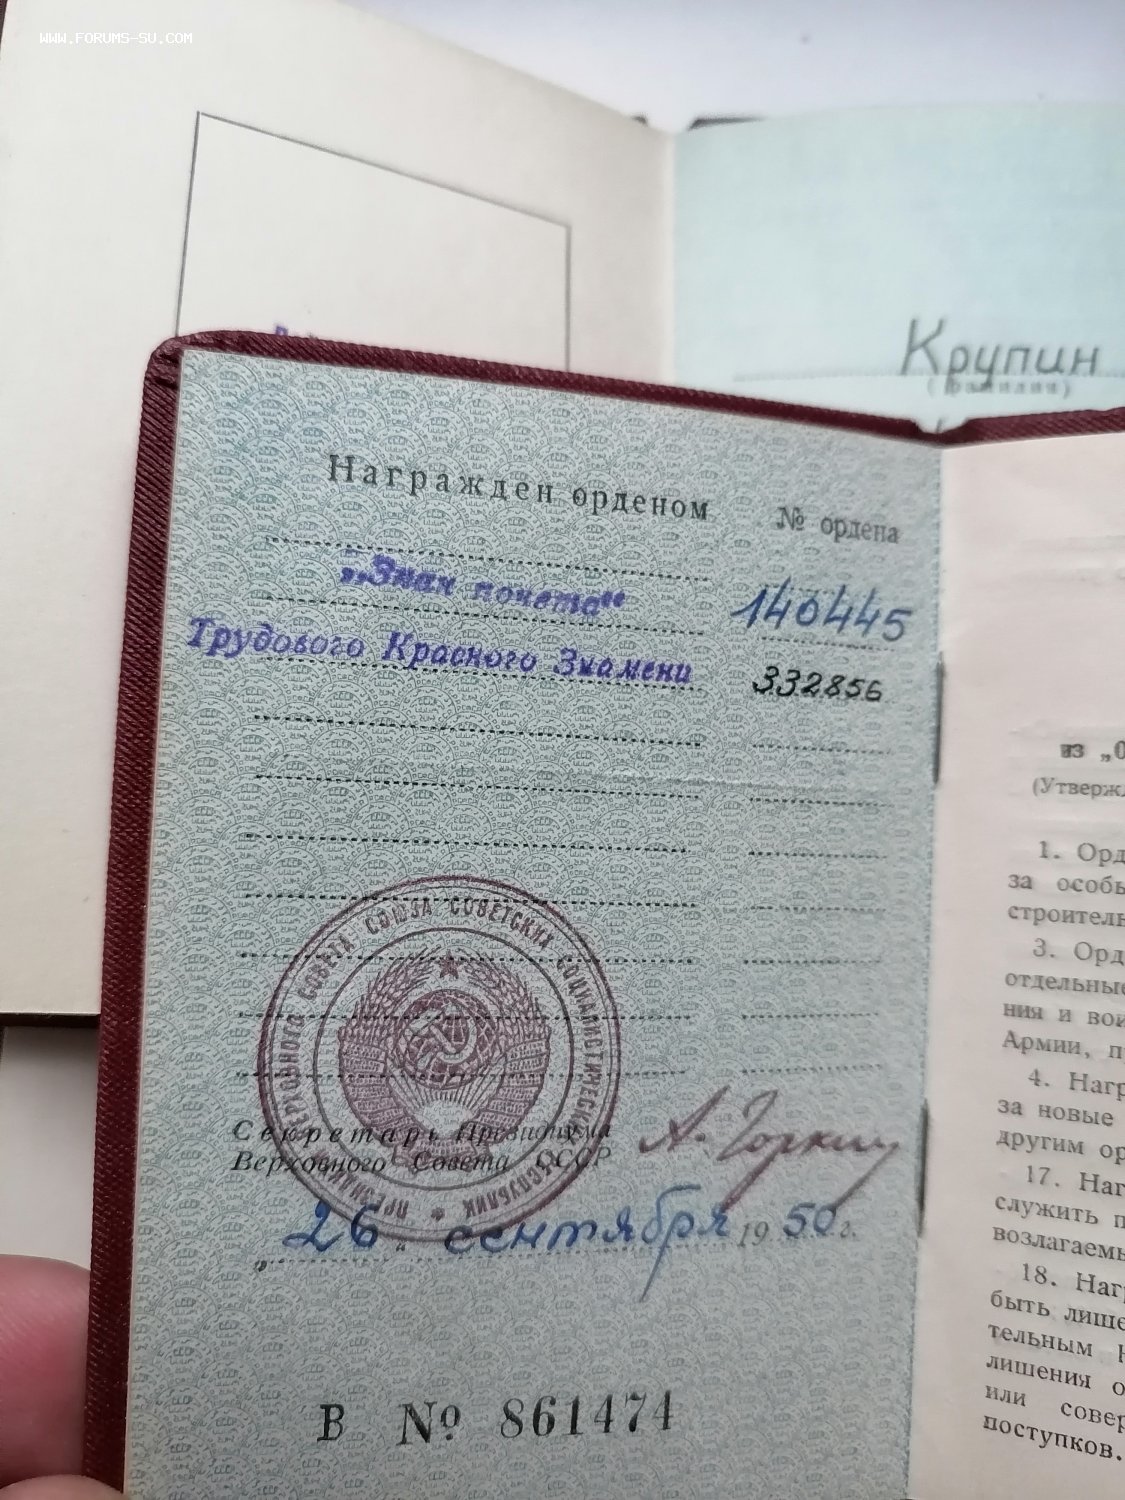 WWW.FORUMS-SU.COM
Крупин
(фамилия)
Награжден орденом № ордена
„Знак почета“ 140445
Трудового Красного Знамени 332856
ПРЕЗИДИУМ ВЕРХОВНОГО СОВЕТА СОЮЗА СОВЕТСКИХ СОЦИАЛИСТИЧЕСКИХ РЕСПУБЛИК
Секретарь Президиума
Верховного Совета СССР
А. Горкин
„26“ сентября 1950 г.
В № 861474
из „О
(Утвержд
1. Орд
за особы
строительн
3. Орд
отдельные
ния и вои
Армии, п
4. Нагр
за новые
другим ор
17. Наг
служить п
возлагаемы
18. Нагр
быть лише
тельным
лишения о
или совер
поступков.